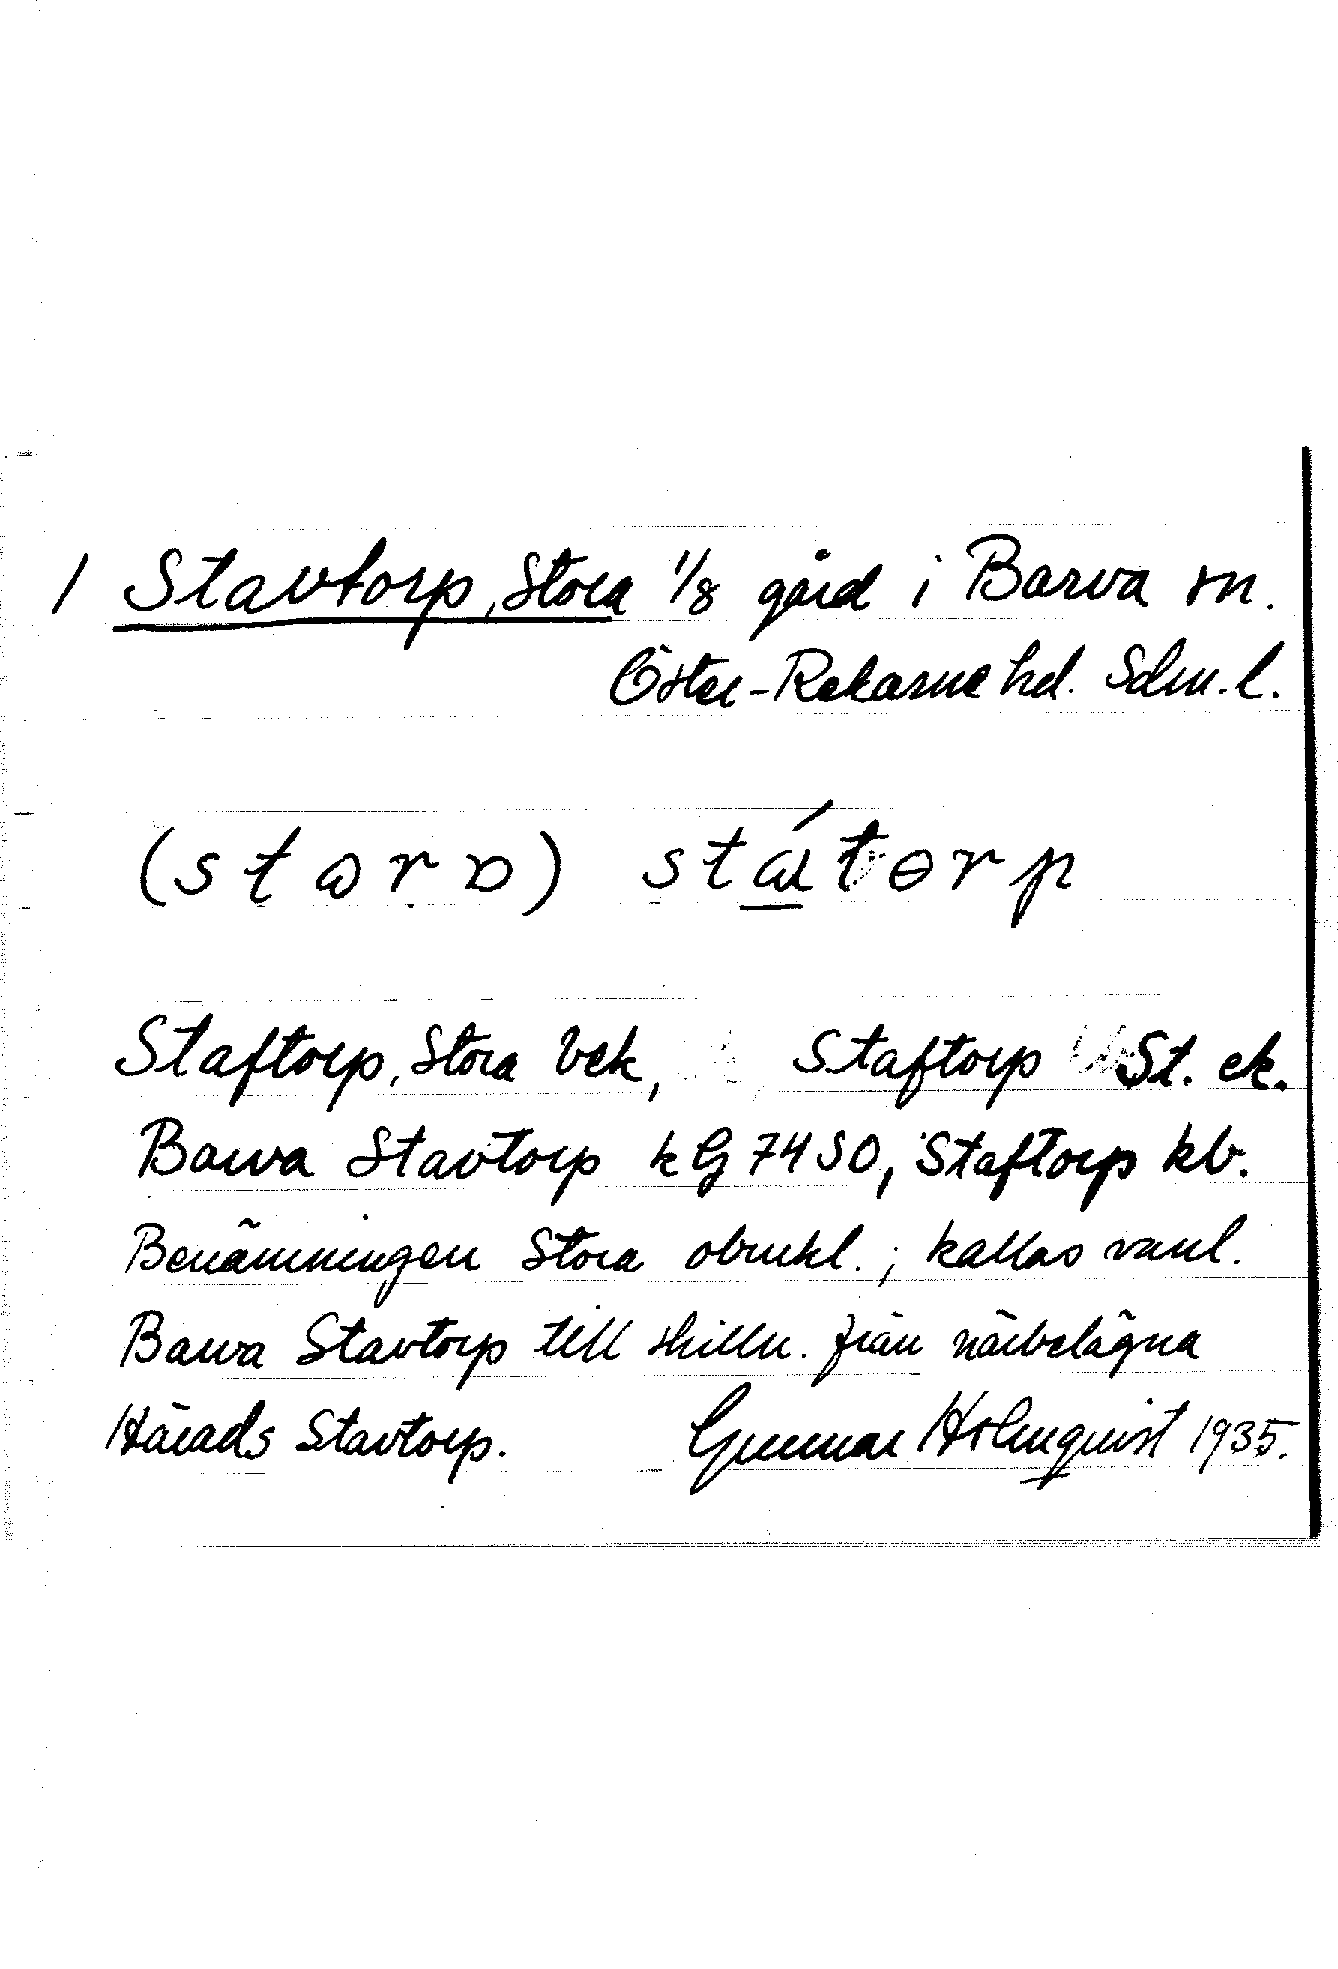 1 Stavtorp, Stora 1/8 gård i Barva sn.
Öster-Rekarne hd. Sdm. l.
(stɷrɒ) státɵrp
Staftorp, Stora bek, Staftorp St. ek.
Barva Stavtorp kG 7450, Staftorp kb.
Benämningen Stora obrukl.; kallas vanl.
Barva Stavtorp till skilln. från närbelägna
Härads Stavtorp. Gunnar Holmquist 1935.